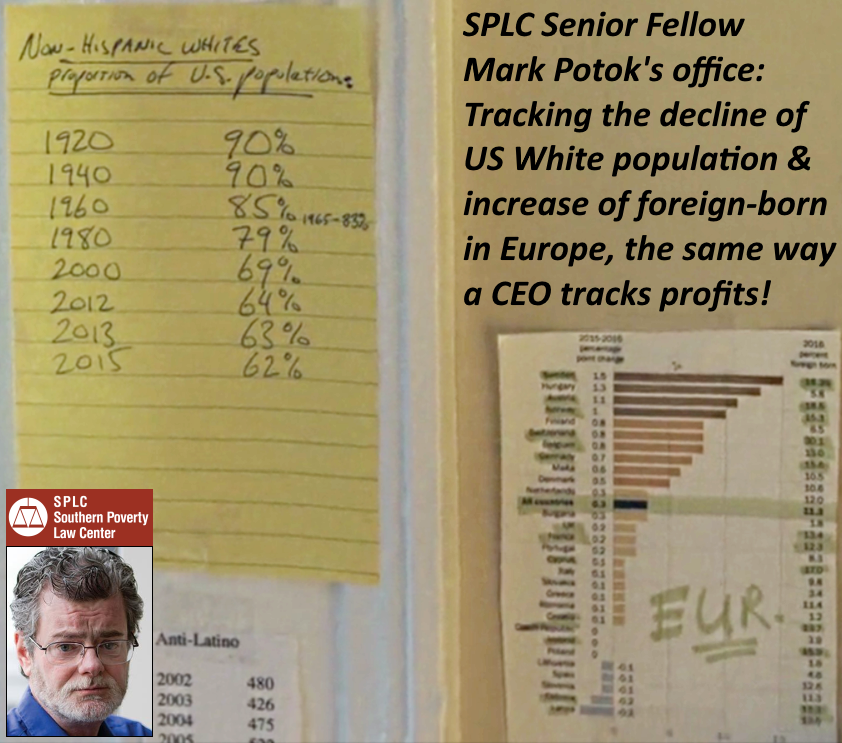 Non-Hispanic Whites
proportion of U.S. population:
1920 90%
1940 90%
1960 85% 1965-83%
1980 79%
2000 69%
2012 64%
2013 63%
2015 62%
SPLC Senior Fellow
Mark Potok's office:
Tracking the decline of
US White population &
increase of foreign-born
in Europe, the same way
a CEO tracks profits!
2015-2016
percentage
point change
2016
percent
foreign born
Sweden 1.5
Hungary 1.3 5.8
Austria 1.1
Norway 1 15.3
Finland 0.8 6.5
Switzerland 0.8
Belgium 0.8
Germany 0.7
Malta 0.6
Denmark 0.5 10.5
Netherlands 0.3
All countries 0.3
Bulgaria 0.3
UK 0.2
France 0.2
Portugal 0.2
Cyprus 0.1
Italy 0.1
Slovakia 0.1
Greece 0.1
Romania 0.1
Croatia 0.1
Czech Republic 0
Ireland 0
Poland 0
Lithuania -0.1
Spain -0.1
Slovenia -0.1
Estonia -0.2
Latvia -0.2
EUR.
SPLC
Southern Poverty
Law Center
Anti-Latino
2002 480
2003 426
2004 475
2005